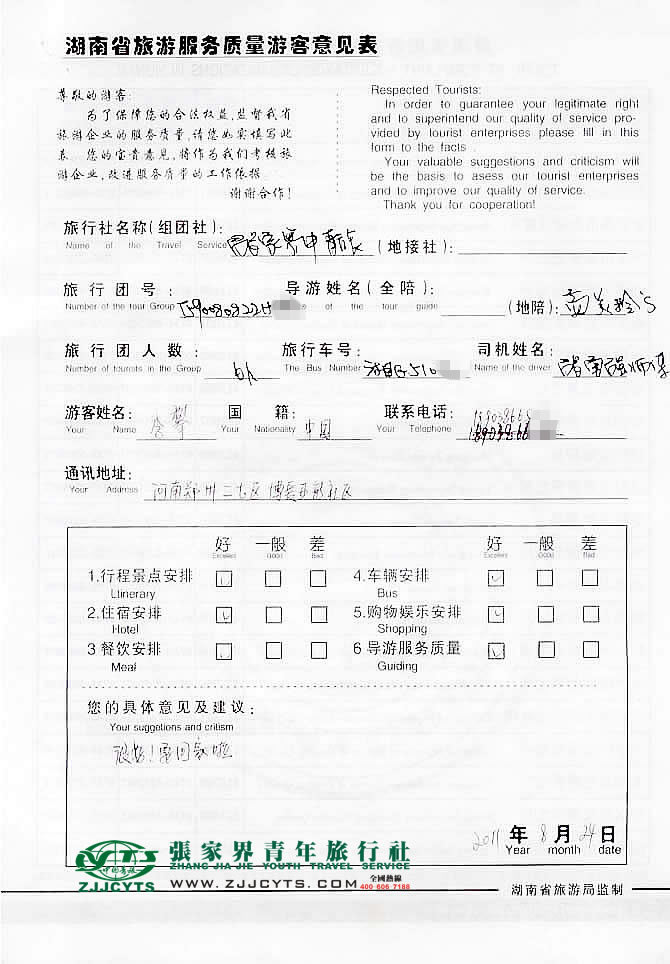 湖南省旅游服务质量游客意见表
尊敬的游客:
为了保障您的合法权益,监督我省
旅游企业的服务质量,请您如实填写此
表. 您的宝贵意见,将作为我们考核旅
游企业,改进服务质量的工作依据.
谢谢合作!
Respected Tourists:
In order to guarantee your legitimate right
and to superintend our quality of service pro-
vided by tourist enterprises please fill in this
form to the facts .
Your valuable suggestions and criticism will
be the basis to asess our tourist enterprises
and to improve our quality of service.
Thank you for cooperation!
旅行社名称(组团社): (地接社):
Name of the Travel Service
旅行团号: 导游姓名(全陪): (地陪):
Number of the tour Group e of the tour guide
旅行团人数: 6人 旅行车号: 司机姓名:
Number of tourists in the Group The Bus Number Name of the driver
游客姓名: 国籍: 中国 联系电话:
Your Name Your Nationality Your Telephone
通讯地址: 河南郑州二七区
Your Address
好 一般 差 好 一般 差
Excellent Good Bad Excellent Good Bad
1.行程景点安排 4.车辆安排
Ltinerary Bus
2.住宿安排 5.购物娱乐安排
Hotel Shopping
3 餐饮安排 6 导游服务质量
Meal Guiding
您的具体意见及建议:
Your suggetions and critism
很好!
2011 年 8 月 24 日
Year month date
CYTS
中国青旅
ZJJCYTS
張家界青年旅行社
ZHANG JIA JIE YOUTH TRAVEL SERVICE
WWW.ZJJCYTS.COM 全國熱線
400 606 7188
湖南省旅游局监制